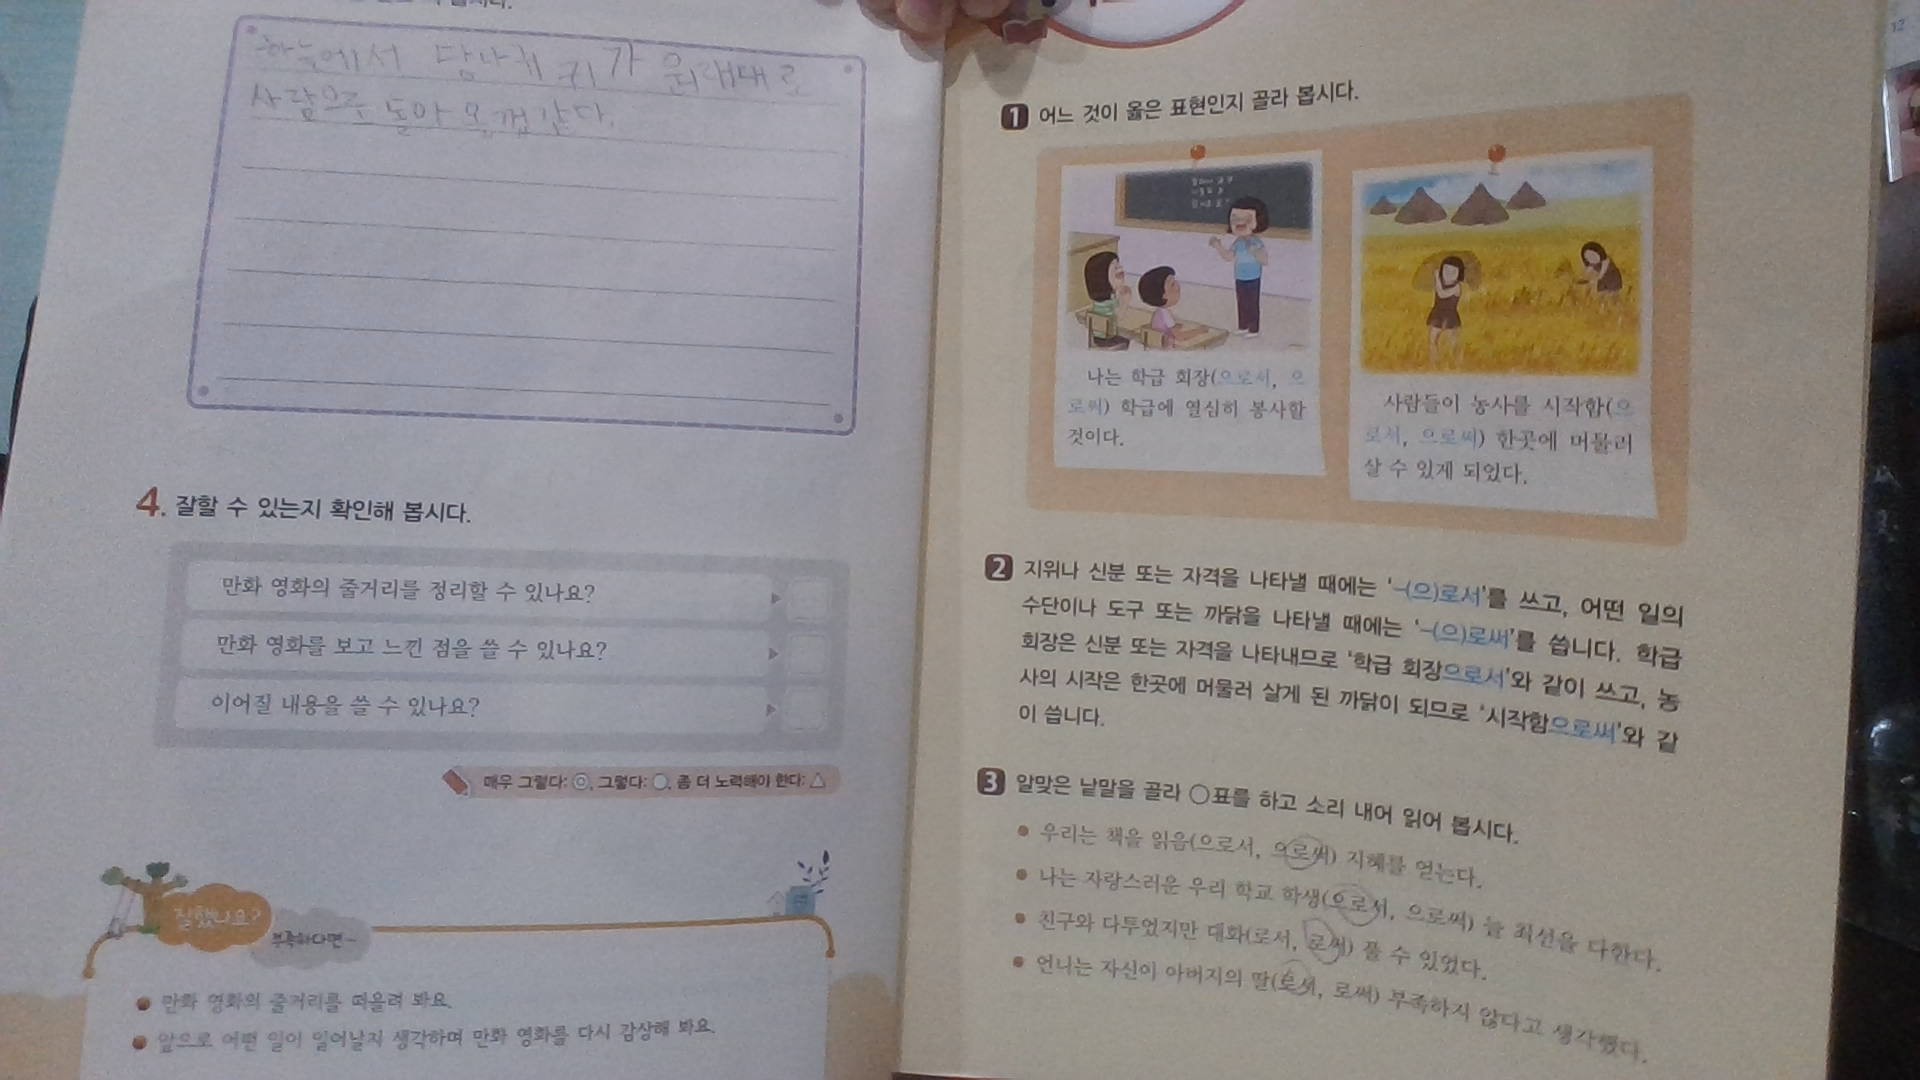 하늘에서 당나귀가 원래대로
사람으로 돌아올껏 같다.
4. 잘할 수 있는지 확인해 봅시다.
만화 영화의 줄거리를 정리할 수 있나요?
만화 영화를 보고 느낀 점을 쓸 수 있나요?
이어질 내용을 쓸 수 있나요?
매우 그렇다: ◎, 그렇다: ○, 좀 더 노력해야 한다: △
잘했나요?
부족하다면~
만화 영화의 줄거리를 떠올려 봐요.
앞으로 어떤 일이 일어날지 생각하며 만화 영화를 다시 감상해 봐요.
1 어느 것이 옳은 표현인지 골라 봅시다.
나는 학급 회장(으로서, 으
로써) 학급에 열심히 봉사할
것이다.
사람들이 농사를 시작함(으
로서, 으로써) 한곳에 머물러
살 수 있게 되었다.
2 지위나 신분 또는 자격을 나타낼 때에는 '-(으)로서'를 쓰고, 어떤 일의
수단이나 도구 또는 까닭을 나타낼 때에는 '-(으)로써'를 씁니다. 학급
회장은 신분 또는 자격을 나타내므로 '학급 회장으로서'와 같이 쓰고, 농
사의 시작은 한곳에 머물러 살게 된 까닭이 되므로 '시작함으로써'와 같
이 씁니다.
3 알맞은 낱말을 골라 ○표를 하고 소리 내어 읽어 봅시다.
우리는 책을 읽음(으로서, 으로써) 지혜를 얻는다.
나는 자랑스러운 우리 학교 학생(으로서, 으로써) 늘 최선을 다한다.
친구와 다투었지만 대화(로서, 로써) 풀 수 있었다.
언니는 자신이 아버지의 딸(로서, 로써) 부족하지 않다고 생각했다.